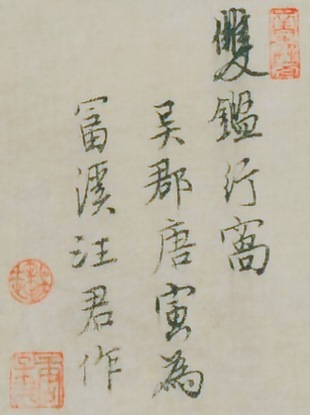 雙鑑行窩
吳郡唐寅為
富溪汪君作